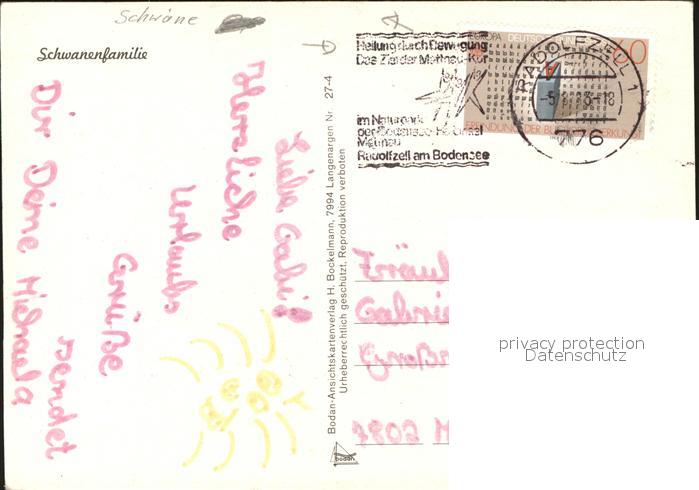 Schwäne
Schwanenfamilie
Liebe Gabi!
Herzliche
Urlaubs
Grüße
sendet
Dir Deine Michaela
Bodan-Ansichtskartenverlag H. Bockelmann, 7994 Langenargen Nr. 27-4
Urheberrechtlich geschützt, Reproduktion verboten
bodan
Heilung durch Bewegung
Das Ziel der Mettnau-Kur
im Naturpark
der Bodensee-Halbinsel
Mettnau
Radolfzell am Bodensee
EUROPA DEUTSCHE BUNDESPOST
60
ERFINDUNG DER BUCHDRUCKERKUNST
RADOLFZELL 1
776
Fräul
Gabrie
Große
7802 M
privacy protection
Datenschutz